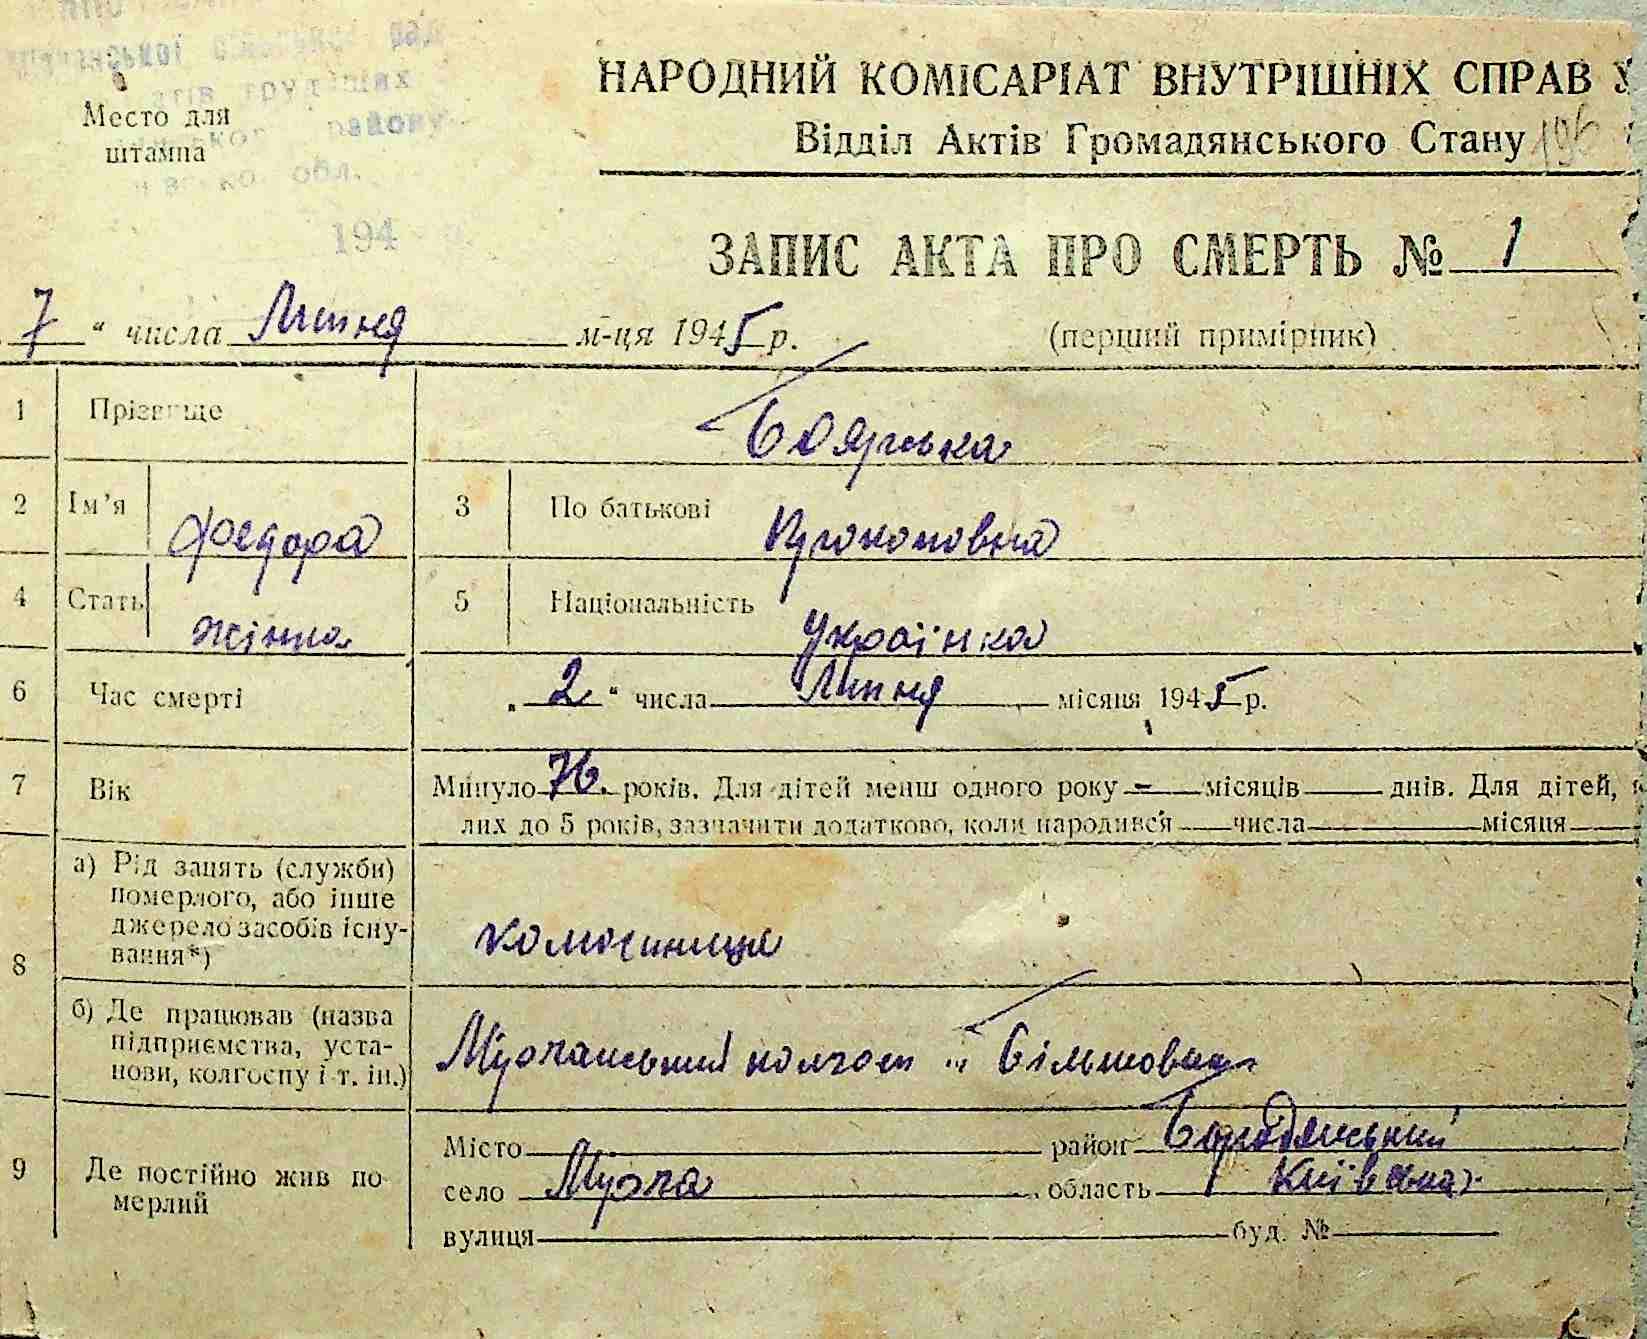 Место для
штампа
району
обл.
194
НАРОДНИЙ КОМІСАРІАТ ВНУТРІШНІХ СПРАВ У
Відділ Актів Громадянського Стану 196
ЗАПИС АКТА ПРО СМЕРТЬ № 1
7 " числа Липня м-ця 1945 р.
(перший примірник)
1 Прізвище Боярська
2 Ім'я Федора 3 По батькові Прокоповна
4 Стать жінка 5 Національність Українка
6 Час смерті „ 2 " числа Липня місяця 1945 р.
7 Вік Минуло 76. років. Для дітей менш одного року - місяців днів. Для дітей,
лих до 5 років, зазначити додатково, коли народився числа місяця
8 а) Рід занять (служби)
померлого, або інше
джерело засобів існу-
вання*)
колгосниця
б) Де працював (назва
підприємства, уста-
нови, колгоспу і т. ін.)
колгосп „ Більшовик
9 Де постійно жив по
мерлий
Місто район Бородянський
село Мироча область Київська
вулиця буд. №